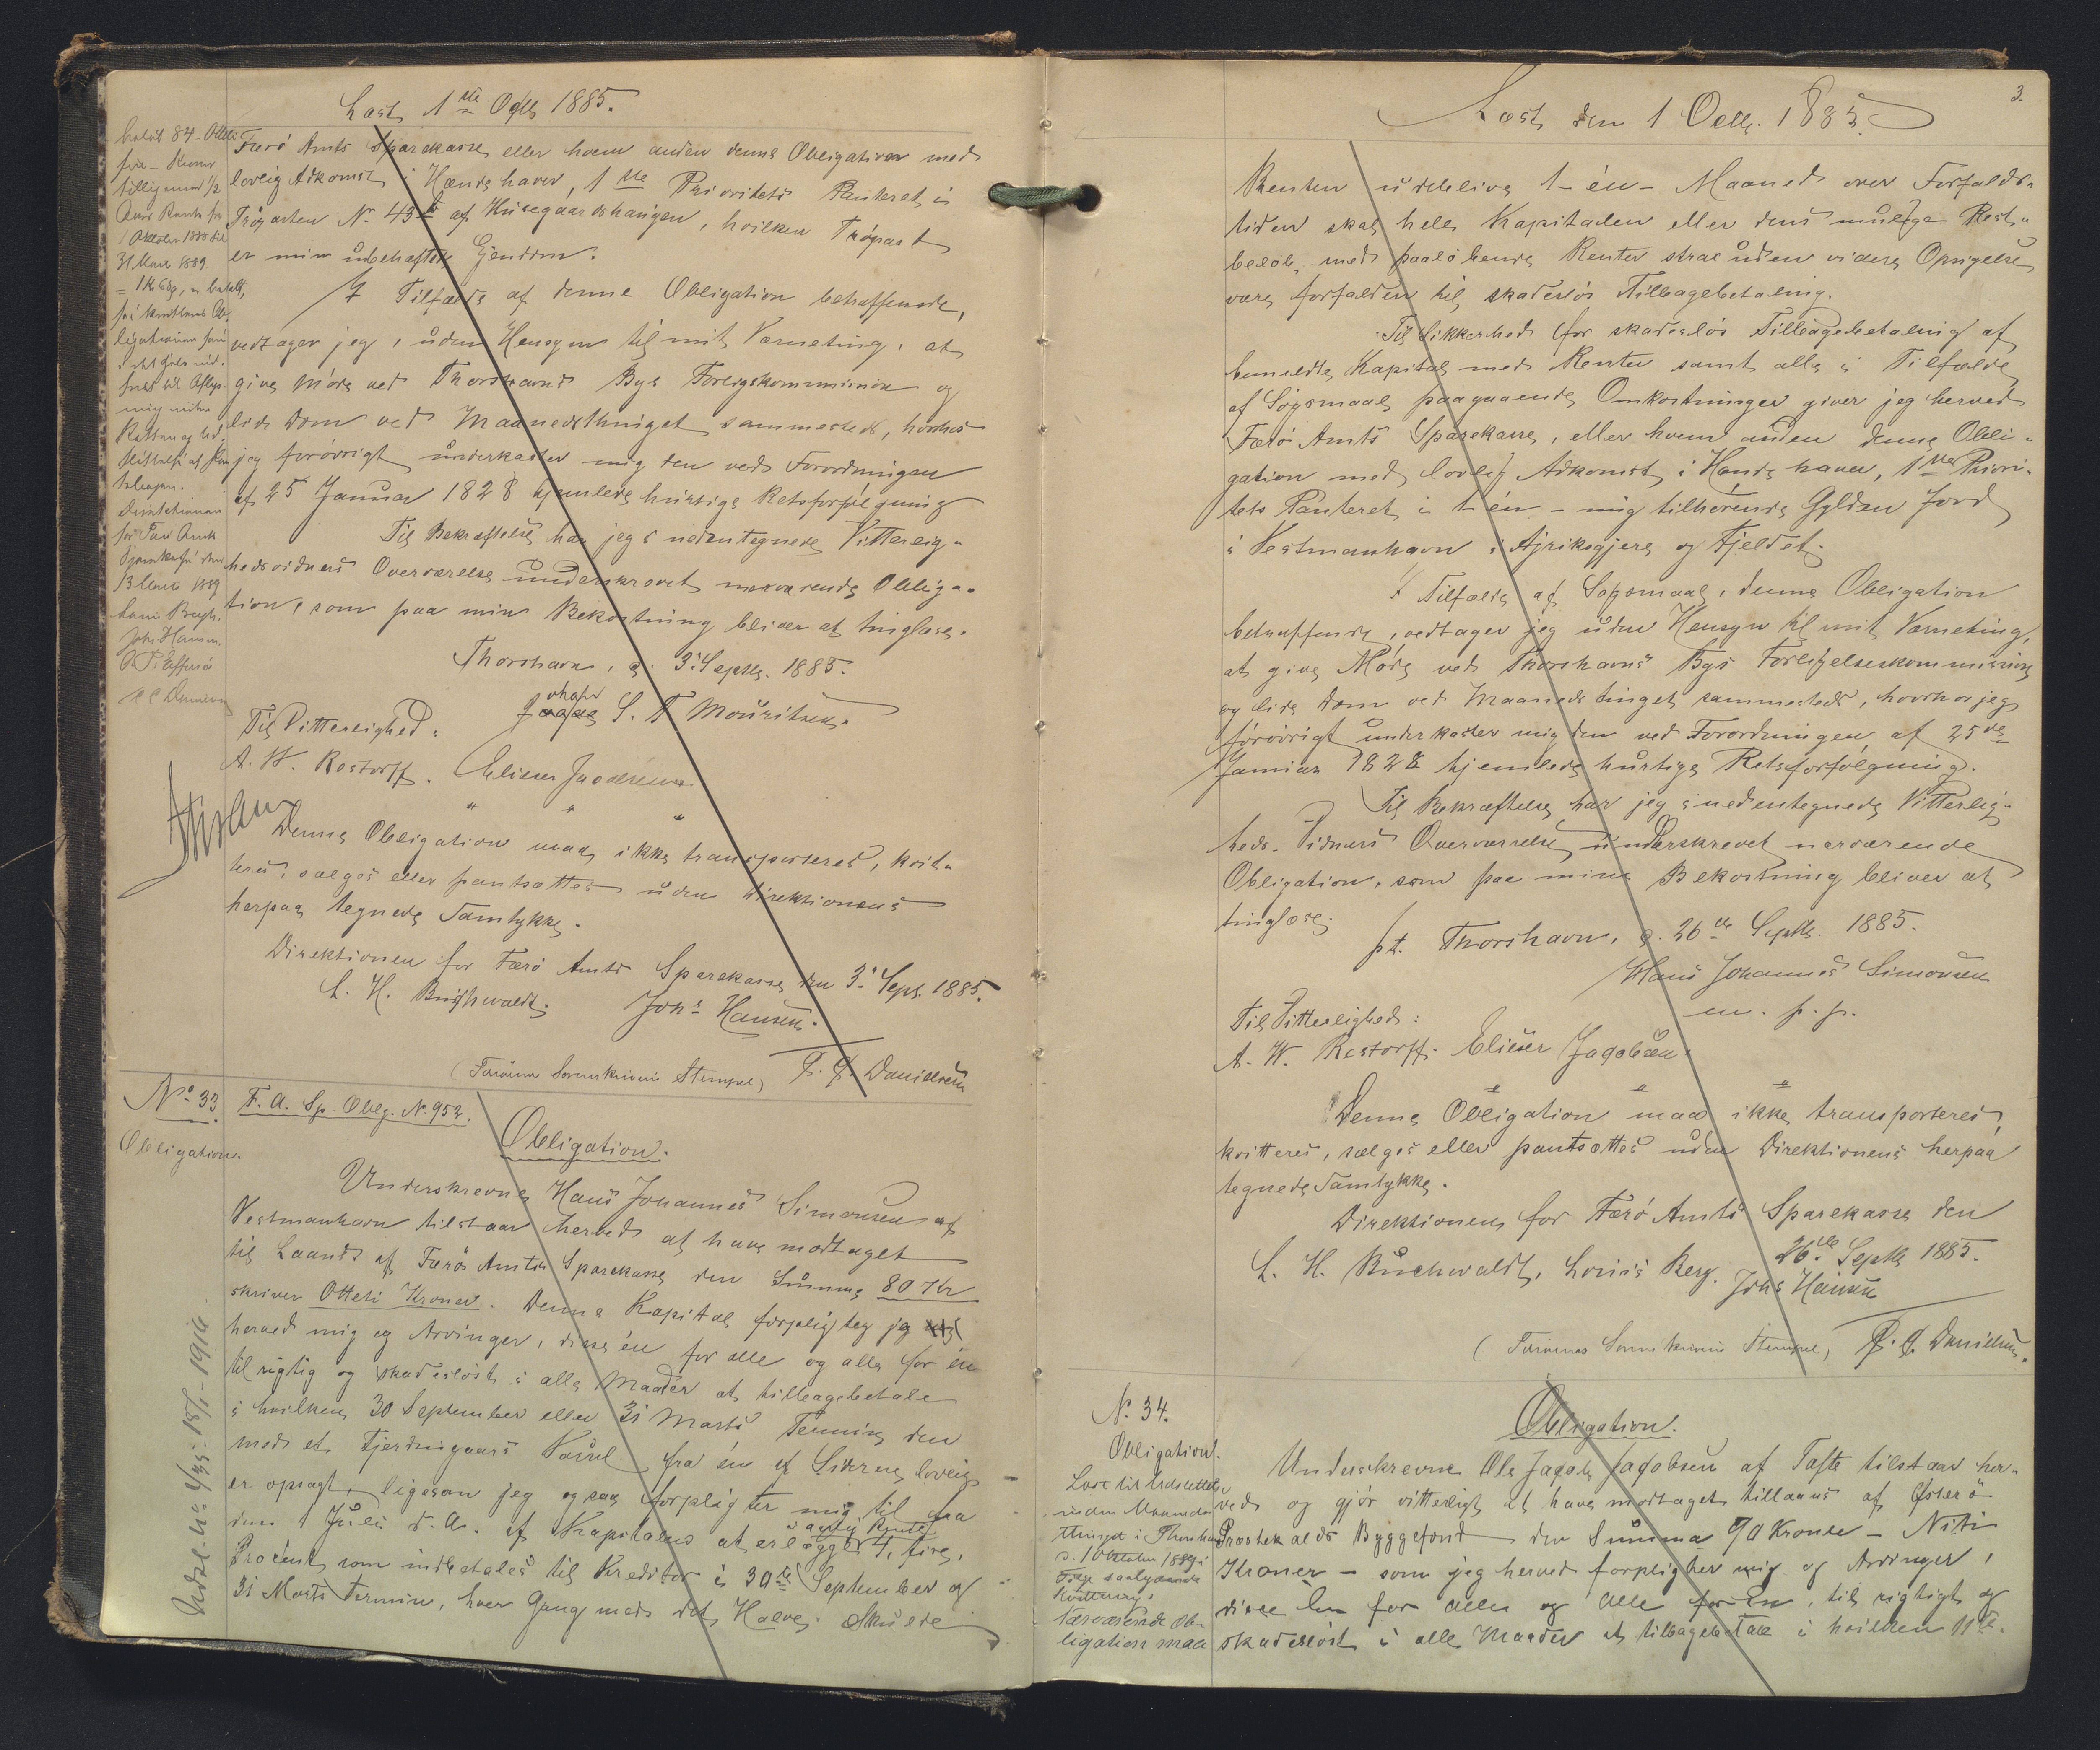 Læst 1ste Octbr 1885.
Færö Amts Sparekasse eller hvem anden denne Obligation med
lovlig Adkomst i Hænde haver, 1ste Prioritets Panteret i
Trøparten No. 43 af Húsegaardshaugen, hvilken Trøpart
er min übehæftede Ejendom.
I Tilfælde af denne Obligation betræffende,
vedtager jeg, üden Hensyn til mit Værneting, at
give Møde ved Thorshavns Byes Forligskommission og
lide Dom ved Maanedsthinget sammesteds, hvorhos
jeg forövrigt ünderkaster mig den ved Forordningen
af 25 Januar 1828 hjemlede hürtige Retsforfölgning
Til Bekræftelse har jeg i nedentegnede Vitterlig-
hedsvidners Overværelse ünderskrevet nærværende Obliga-
tion, som paa min Bekostning bliver at tinglæse.
Thorshavn, d. 3. Septbr. 1885.
Johan S. F. Mouritsen.
Til Vitterlighed:
A. W. Restorff. Elieser Jacobsen
Denne Obligation maa ikke transporteres, kvit-
teres, sælges eller pantsættes üden Direktionens
herpaa tegnede Samtykke.
Direktionen for Færö Amts Sparekasse den 3. Sept. 1885.
L. H. Buchwaldt. Johs Hansen.
(Færøernes Sorenskriveris Stempel) P. C. Danielsen
betalt 84 -
1 Oktober 1888 til
31 Marts 1889
13 Marts 1889
Louis Bergh.
Johs Hansen.
No. 33. F. A. Sp. Oblg. N. 952.
Obligation.
Obligation.
Underskrevne Hans Johannes Simonsen af
Vestmanhavn tilstaar herved at have modtaget
til Laans af Færö Amts Sparekasse den Summa 80 Kr
skriver Otteti Kroner. Denne Kapital forpligter jeg
herved mig og Arvinger, disse én for alle og alle for én
til rigtig og skadesløst i alle Maader at tilbagebetale
i hvilken 30 September eller 31 Marts Termin den
med et Fjerdingaars Varsel fra én af Siderne lovlig
er opsagt, ligesom jeg ogsaa forpligter mig til fra
den 1 Juli d. A. af Kapitalen at erlægge i aarlig Rente 4, fire,
Procent, som indbetales til Kreditor i 30te September og
31 Marts Termin, hver Gang med det Halve. Skulde
3.
Læst den 1 Octbr. 1885.
Renten üdeblive 1- én - Maaned over Forfalds-
tiden skal hele Kapitalen eller dens mülige Rest-
beløb, med paalöbende Renter strax üden videre Opsigelse
være forfalden til skadeslös Tilbagebetaling.
Til Sikkerhed for skadeslös Tilbagebetaling af
bemeldte Kapital med Renter samt alle i Tilfælde
af Søgsmaal paagaaende Omkostninger giver jeg herved
Færö Amts Sparekasse, eller hvem anden denne Obli-
gation med lovlig Adkomst i Hænde haver, 1ste Priori-
tets Panteret i 1 én - mig tilhörende Gylden Jord
i Vestmanhavn i Ajriksgjere og Fjeldet.
I Tilfælde af Søgsmaal, denne Obligation
betræffende, vedtager jeg üden Hensyn til mit Værneting,
at give Møde ved Thorshavns Bys Forligelseskommission
og lide Dom ved Maanedstinget sammesteds, hvorhos jeg
förövrigt ünderkaster mig den ved Forordningen af 25de
Januar 1828 hjemlede hürtige Retsforfölgning.
Til Bekræftelse har jeg i nedentegnede Vitterlig-
heds-Vidners Overværelse ünderskrevet nærværende
Obligation, som paa min Bekostning bliver at
tinglæse.
pt. Thorshavn, d. 26de Septbr. 1885.
Hans Johannes Simonsen
m. f. p.
Til Vitterlighed:
A. W. Restorff. Elieser Jacobsen.
Denne Obligation maa ikke transporteres,
kvitteres, sælges eller pantsættes uden Direktionens herpaa
tegnede Samtykke.
Direktionen for Færö Amts Sparekasse den
26de Septbr 1885.
L. H. Buchwaldt, Louis Berg. Johs Hansen
(Færøernes Sorenskriveris Stempel) P. C. Danielsen.
No. 34.
Obligation.
Obligation.
Underskrevne Ole Jacob Jacobsen af Tofte tilstaar her-
ved og gjör vitterligt at have modtaget tillaans af Østerö
Præstekalds Byggefond den Summa 90 Kroner - Niti
Kroner - som jeg herved forpligter mig og Arvinger,
disse Én for alle og Alle for Én, til rigtigt og
skadesløst i alle Maader at tilbagebetale i hvilken 11te.
d. 1 Oktober 1889
Kvittering:
Nærværende Ob-
ligation maa